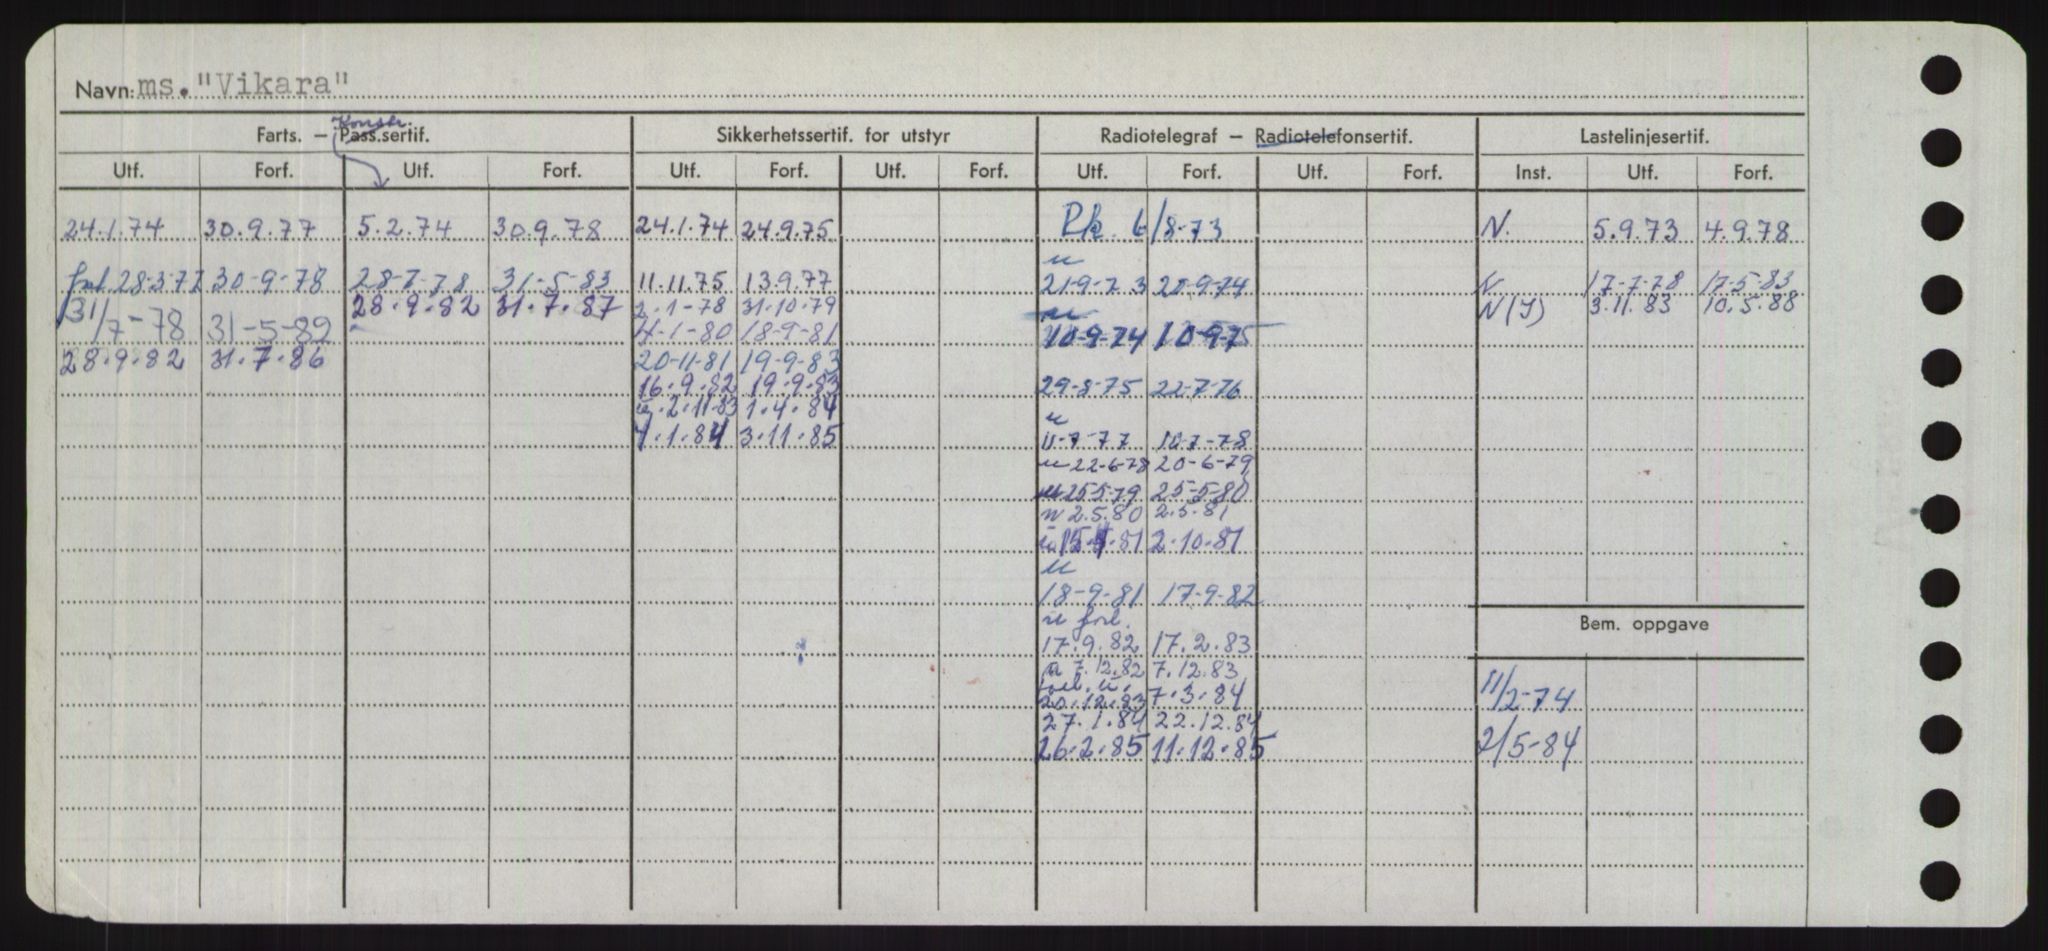 Navn: ms. "Vikara"
Konstr.
Farts. – Pass.sertif. Sikkerhetssertif. for utstyr Radiotelegraf – Radiotelefonsertif. Lastelinjesertif.
Utf. Forf. Utf. Forf. Utf. Forf. Utf. Forf. Utf. Forf. Utf. Forf. Inst. Utf. Forf.
24.1.74 30.9.77
28-3-77 30-9-78
31/7-78 31-5-82
28.9.82 31.7.86
5.2.74 30.9.78
28-7-78 31-5-83
28.9.82 31.7.87
24.1.74 24.9.75
11.11.75 13.9.77
2.1-78 31-10-79
4-1-80 18-9-81
20-11-81 19-9-83
16.9.82 19.9.83
2.11.83 1.4.84
4.1.84 3.11.85
Pk. 6/8-73
u
21-9-73 20-9-74
u
10-9-74 10-9-75
29-8-75 22-7-76
u
11-7-77 10-7-78
u 22-6-78 20-6-79
u 25-5-79 25-5-80
u 2.5.80 2.5.81
u 15.4.81 2.10.81
u
18-9-81 17-9-82
u forl.
17.9.82 17.2.83
u 7.12.82 7.12.83
forl. u.
20.12.83 7.3.84
27.1.84 22.12.84
26.2.85 11.12.85
N. 5.9.73 4.9.78
N 17-7-78 17-5-83
N(I) 3.11.83 10.5.88
Bem. oppgave
11/2-74
2/5-84